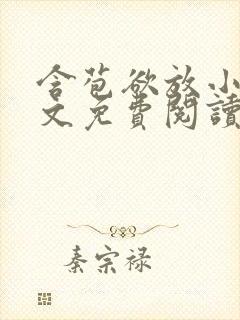 含苞欲放小
文免費閱讀
秦宗禄